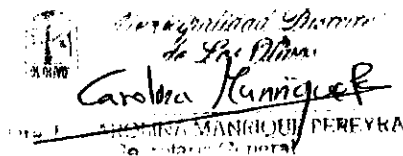 Municipalidad Distrital
de Los Olivos
Carolina Manrique P
CAROLINA MANRIQUE PEREYRA
Secretaria General